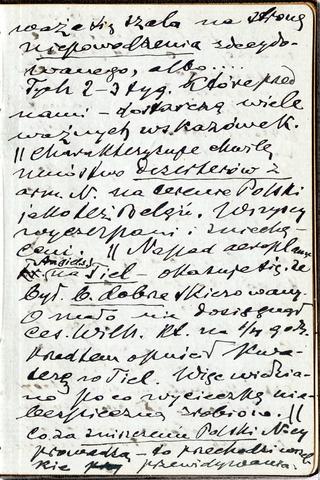 waża się szala na stronę
niepowodzenia zdecydo-
wanego, albo.....
Tych 2-3 tyg. które przed
nami – dostarczą wiele
ważnych wskazówek.
|| Charakteryzuje chwilę
mnóstwo dezerterów z
arm. N. na terenie Polski
jako też Belgii. Wszyscy
wyczerpani i zniechę-
ceni. || Napad aeroplanu
Angielsk. na Tiel – okazuje się, że
był b. dobrze skierowany.
O mało nie dosięgnął
ces. Wilh. Kt. na ¼ godz.
przedtem opuścił kwa-
terę w Tiel. Więc wiedzia-
no po co wycieczkę nie-
bezpieczną zrobiono. ||
Co za zniszczenie Polski Niemcy
prowadzą – to przechodzi wszel-
kie przewidywania.